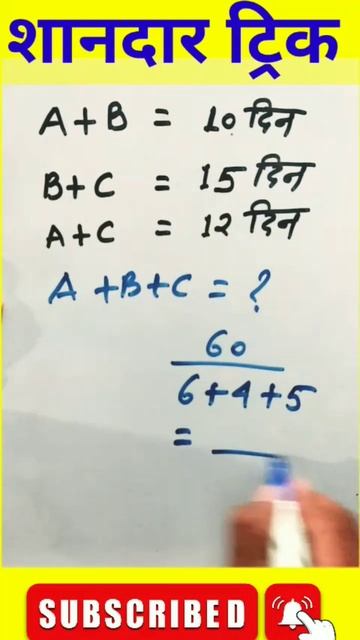 शानदार ट्रिक
A+B = 10 दिन
B+C = 15 दिन
A+C = 12 दिन
A+B+C = ?
60
6+4+5
=
SUBSCRIBED